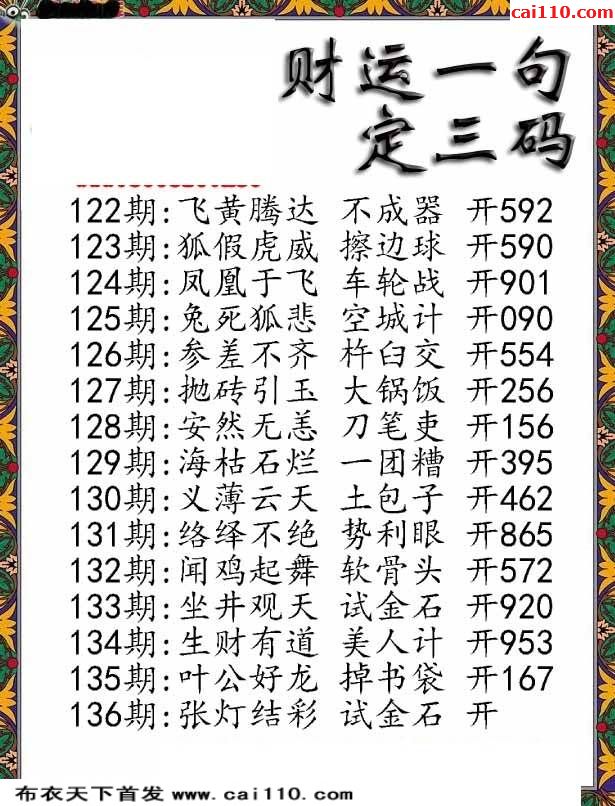 cai110.com
财运一句
定三码
122期:飞黄腾达 不成器 开592
123期:狐假虎威 擦边球 开590
124期:凤凰于飞 车轮战 开901
125期:兔死狐悲 空城计 开090
126期:参差不齐 杵臼交 开554
127期:抛砖引玉 大锅饭 开256
128期:安然无恙 刀笔吏 开156
129期:海枯石烂 一团糟 开395
130期:义薄云天 土包子 开462
131期:络绎不绝 势利眼 开865
132期:闻鸡起舞 软骨头 开572
133期:坐井观天 试金石 开920
134期:生财有道 美人计 开953
135期:叶公好龙 掉书袋 开167
136期:张灯结彩 试金石 开
布衣天下首发 www.cai110.com